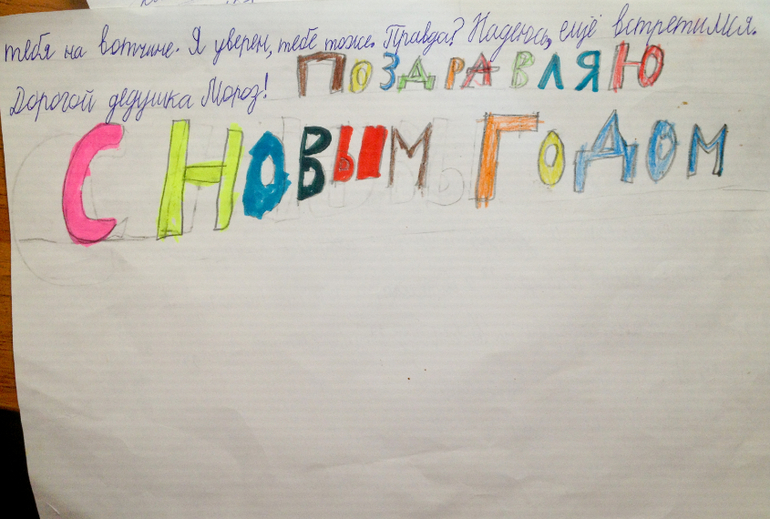 тебя на вотчине. Я уверен, тебе тоже. Правда? Надеюсь, ещё встретимся.
Дорогой дедушка Мороз! ПОЗДРАВЛЯЮ
С НОВЫМ ГОДОМ